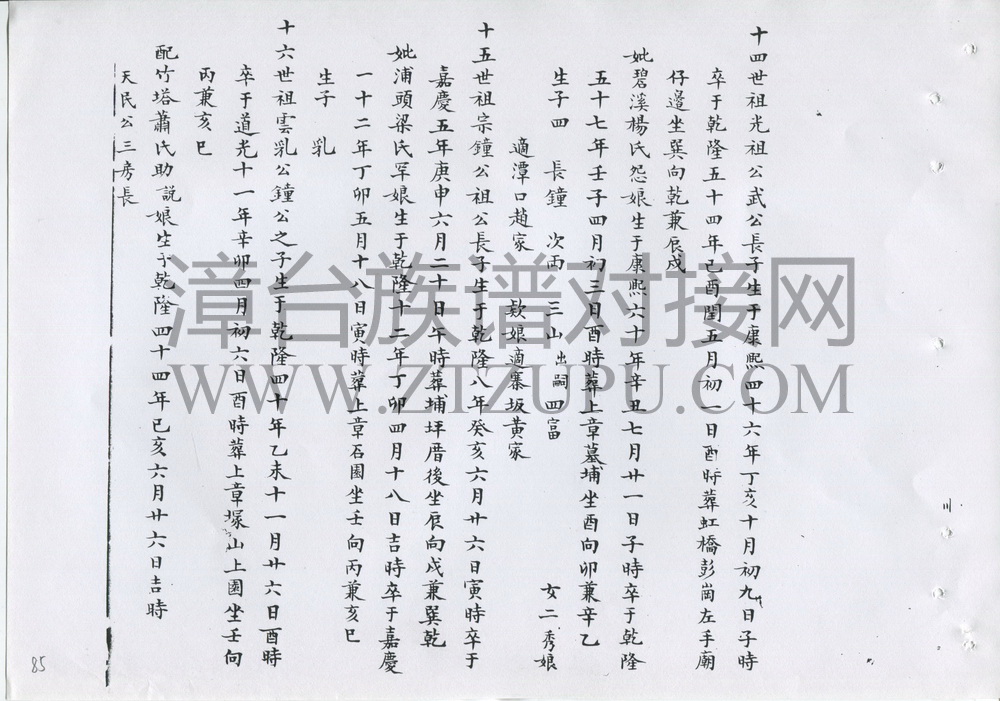 十四世祖光祖公武公長子生于康熙四十六年丁亥十月初九日子時
卒于乾隆五十四年己酉閏五月初一日酉時葬虹橋彭崗左手廟
仔邊坐巽向乾兼辰戌
妣碧溪楊氏怨娘生于康熙六十年辛丑七月廿一日子時卒于乾隆
五十七年壬子四月初三日酉時葬上章墓埔坐酉向卯兼辛乙
生子四 長鐘 次丙 三山出嗣四富 女二秀娘
適潭口趙家 欵娘適寨坂黃家
十五世祖宗鐘公祖公長子生于乾隆八年癸亥六月廿六日寅時卒于
嘉慶五年庚申六月二十日午時葬埔坪厝後坐辰向戌兼巽乾
妣浦頭梁氏罕娘生于乾隆十二年丁卯四月十八日吉時卒于嘉慶
一十二年丁卯五月十八日寅時葬上章石園坐壬向丙兼亥巳
生子 乳
十六世祖雲乳公鐘公之子生于乾隆四十年乙未十一月廿六日酉時
卒于道光十一年辛卯四月初六日酉時葬上章塚山上園坐壬向
丙兼亥巳
配竹塔蕭氏助說娘生于乾隆四十四年己亥六月廿六日吉時
天民公三房長
85
漳台族谱对接网
WWW.ZTZUPU.COM